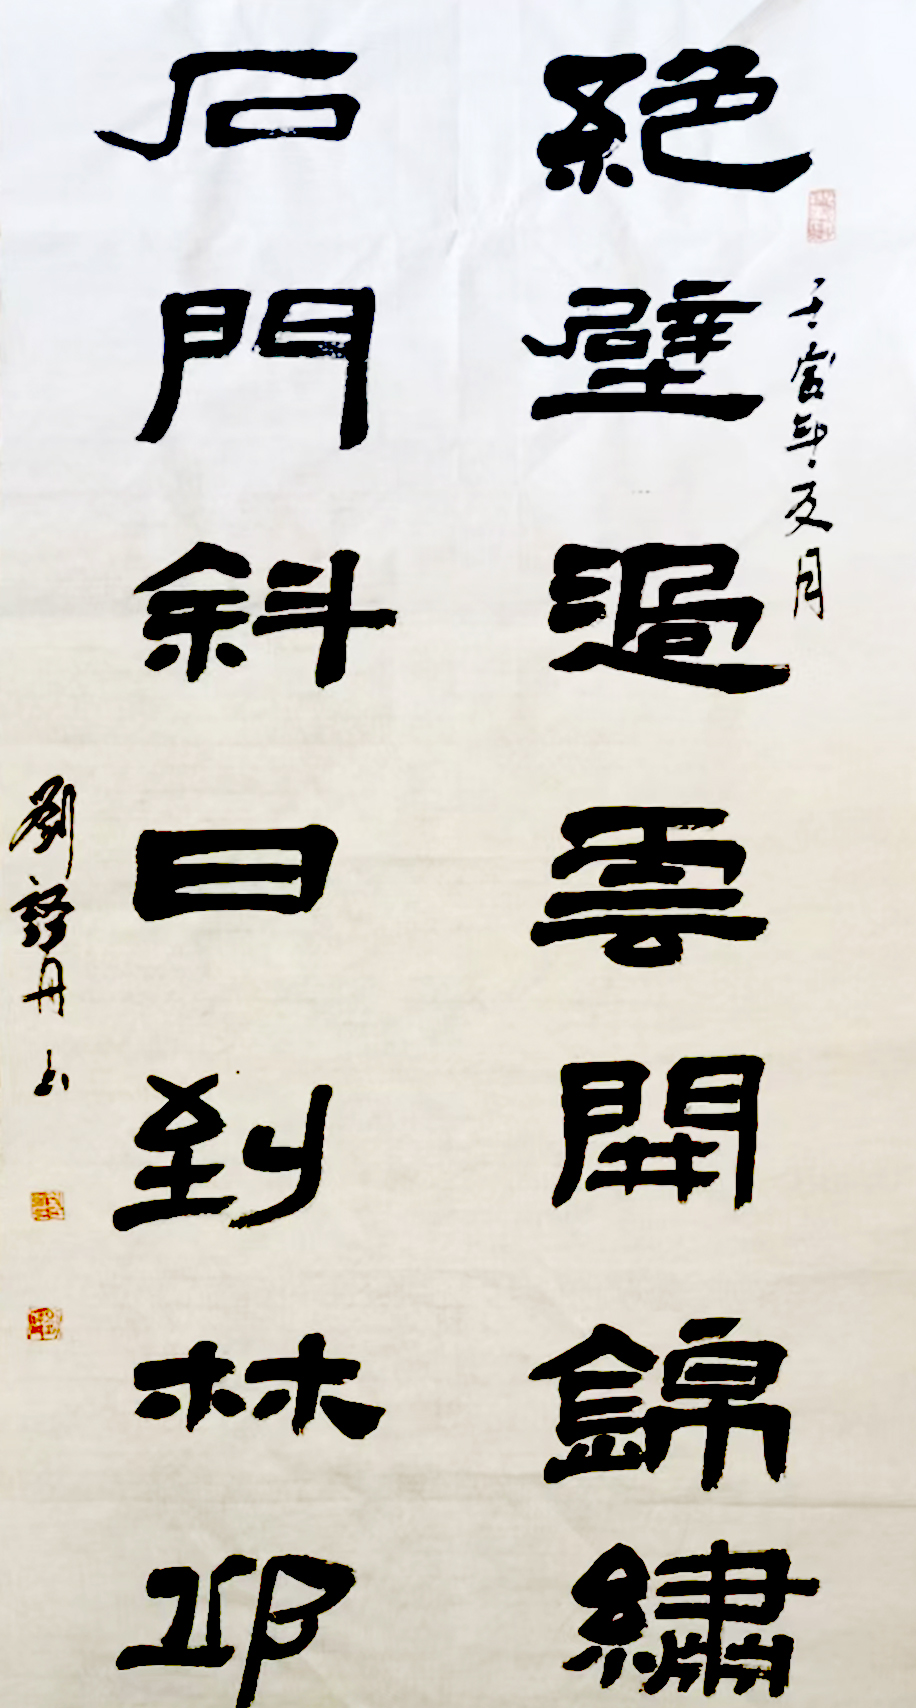 壬寅年夏月
絕壁過雲開錦繡
石門斜日到林邱
劉譯丹书